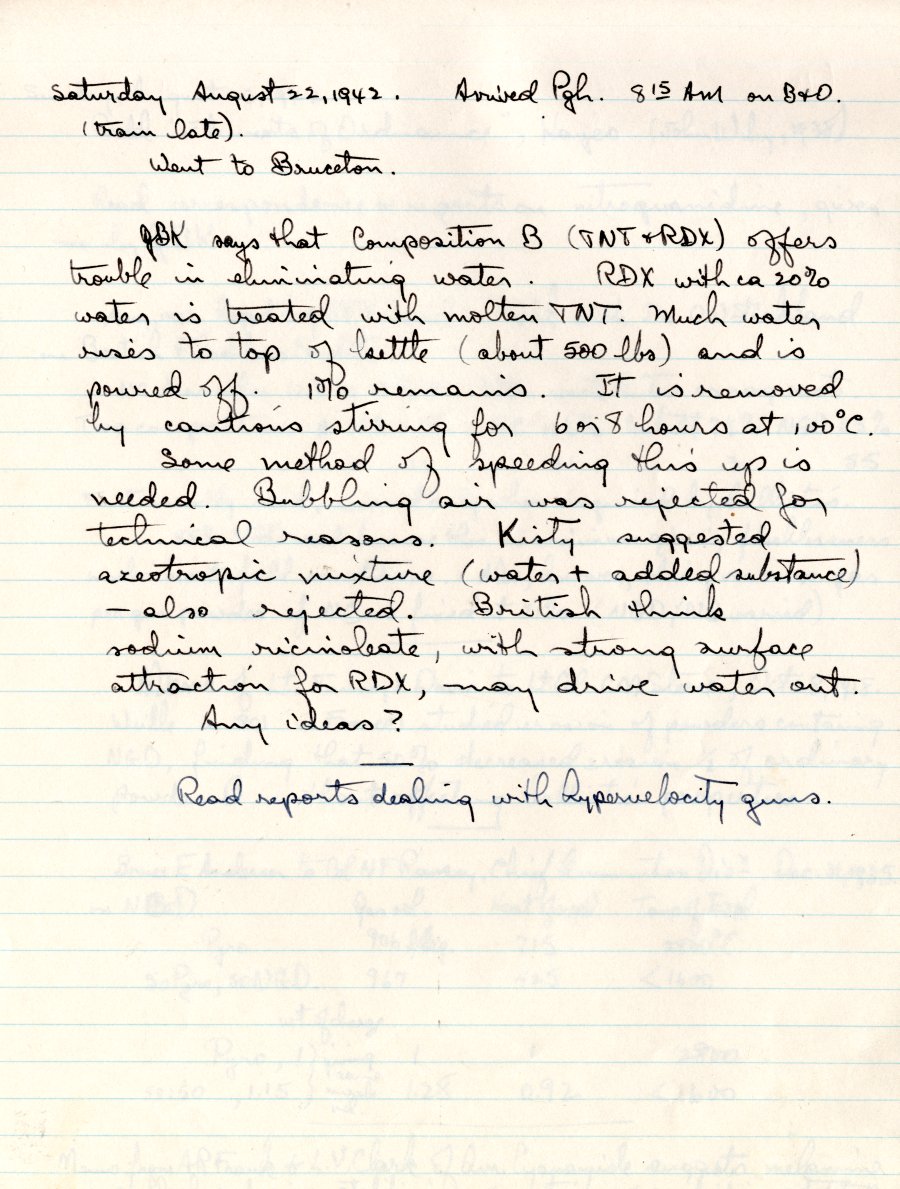 Saturday August 22, 1942. Arrived Pgh. 8 15 AM on B+O.
(train late).
Went to Bruceton.
GBK says that Composition B (TNT + RDX) offers
trouble in eliminating water. RDX with ca 20%
water is treated with molten TNT. Much water
rises to top of kettle (about 500 lbs) and is
poured off. 1% remains. It is removed
by cautious stirring for 6 or 8 hours at 100°C.
Some method of speeding this up is
needed. Bubbling air was rejected for
technical reasons. Kisty suggested
azeotropic mixture (water + added substance)
– also rejected. British think
sodium ricinoleate, with strong surface
attraction for RDX, may drive water out.
Any ideas?
Read reports dealing with hypervelocity guns.